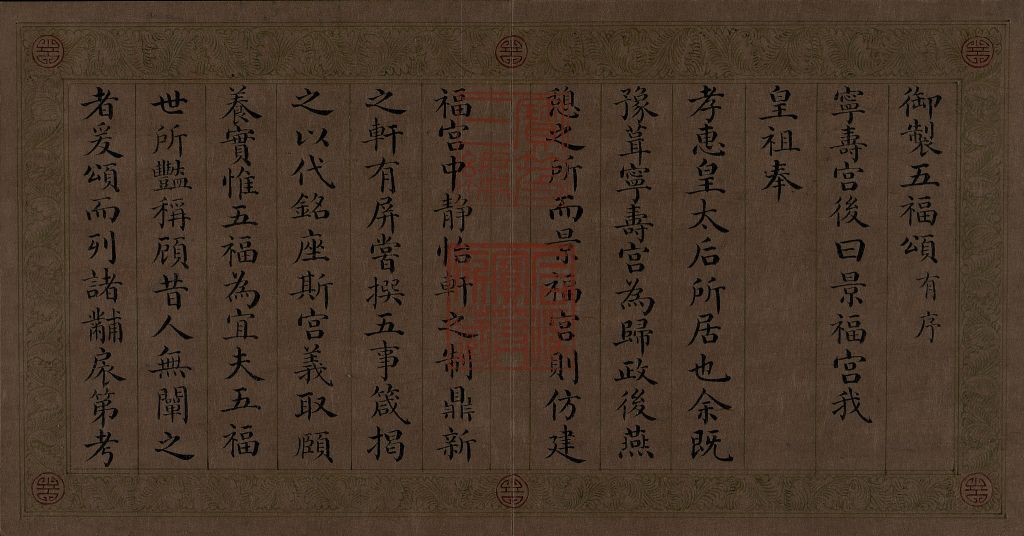 御製五福頌有序
寧壽宮後曰景福宮我
皇祖奉
孝惠皇太后所居也余既
豫葺寧壽宮為歸政後燕
憩之所而景福宮則仿建
福宮中静怡軒之制鼎新
之軒有屏嘗撰五事箴揭
之以代銘座斯宮義取頤
養實惟五福為宜夫五福
世所豔稱顧昔人無闡之
者爰頌而列諸黼扆第考